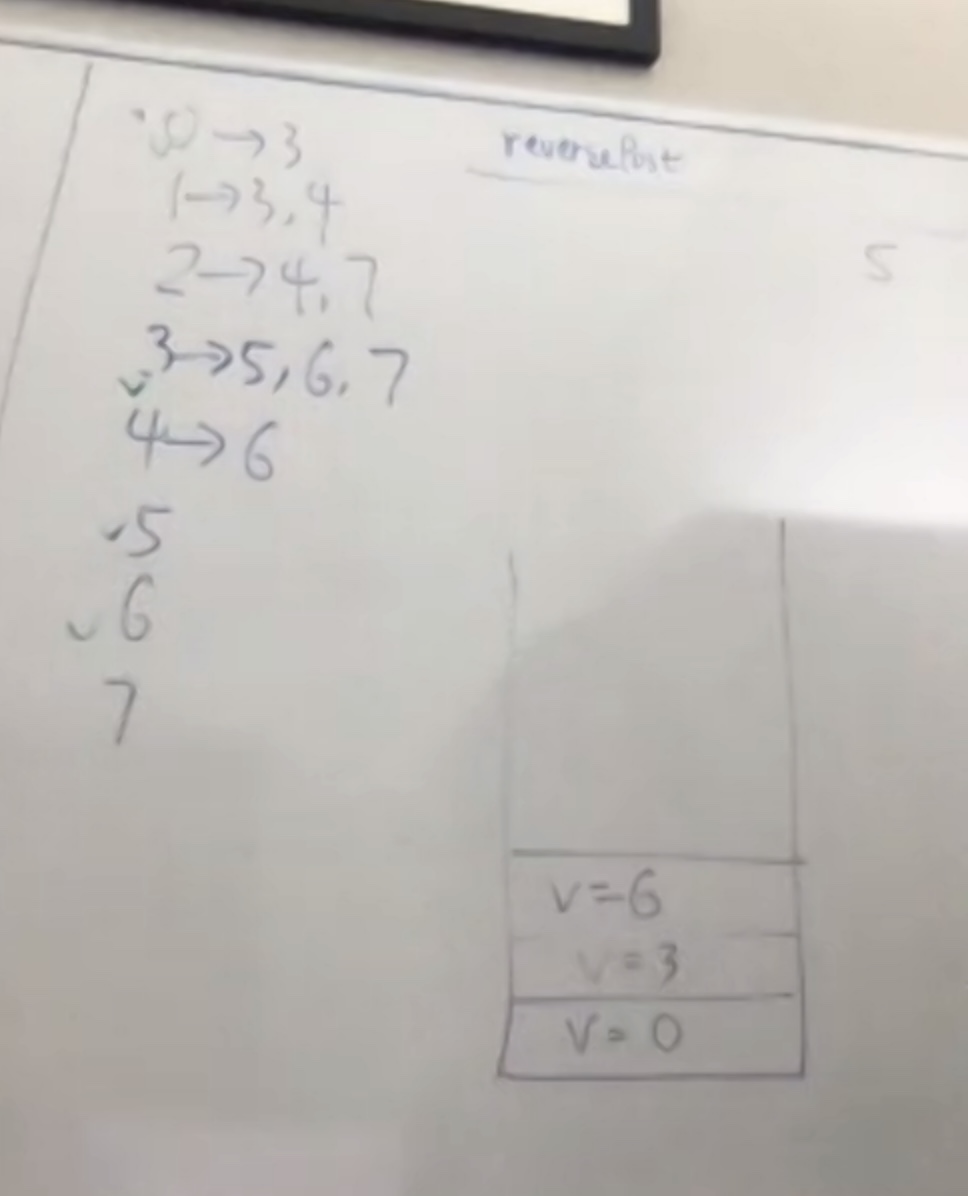 0→3
1→3,4
2→4,7
3→5,6,7
4→6
5
6
7
reversePost
5
v=6
v=3
v=0